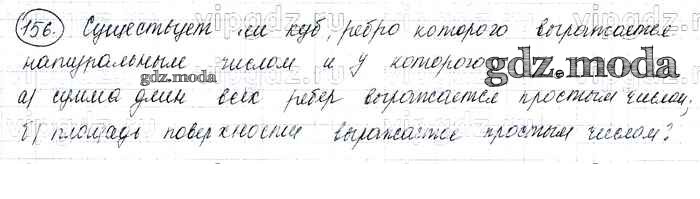 156. Существует ли куб, ребро которого выражается
натуральным числом и у которого
gdz.moda
gdz.moda
а) сумма длин всех ребер выражается простым числом;
б) площадь поверхности выражается простым числом?